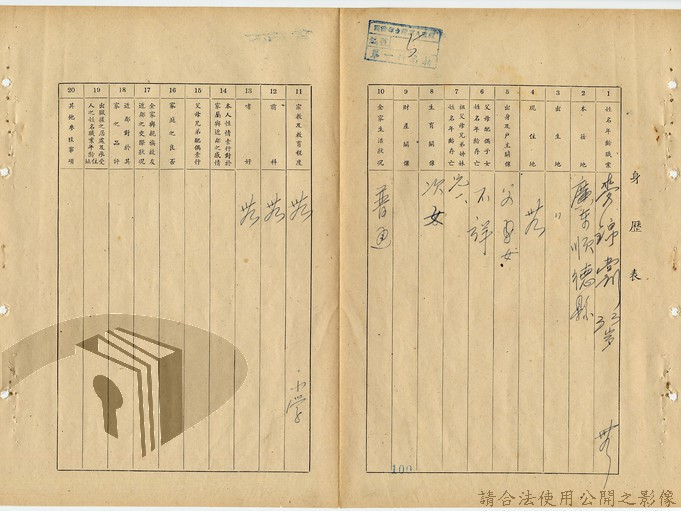 身歷表
1 姓名年齡職業
錦 32岁 無
2 本籍地
廣東順德縣
3 出生地
〃
4 現住地
無
5 出身及戶主關係
次女
6 父母配偶子女姓名年齡存亡
不詳
7 祖父母兄弟姊妹姓名年齡存亡
8 生育關係
次女
9 財產關係
10 全家生活狀況
普通
100
11 宗教及教育程度
無 小學
12 前科
無
13 嗜好
無
14 本人性情素行對於家屬與近鄰之感情
15 父母兄弟配偶素行
16 家庭之良否
17 全家與親族故友近鄰之交際狀況
18 近鄰對於其家之品評
19 出獄後之居處及承受人之姓名職業年齡住址
20 其他參考事項
請合法使用公開之影像